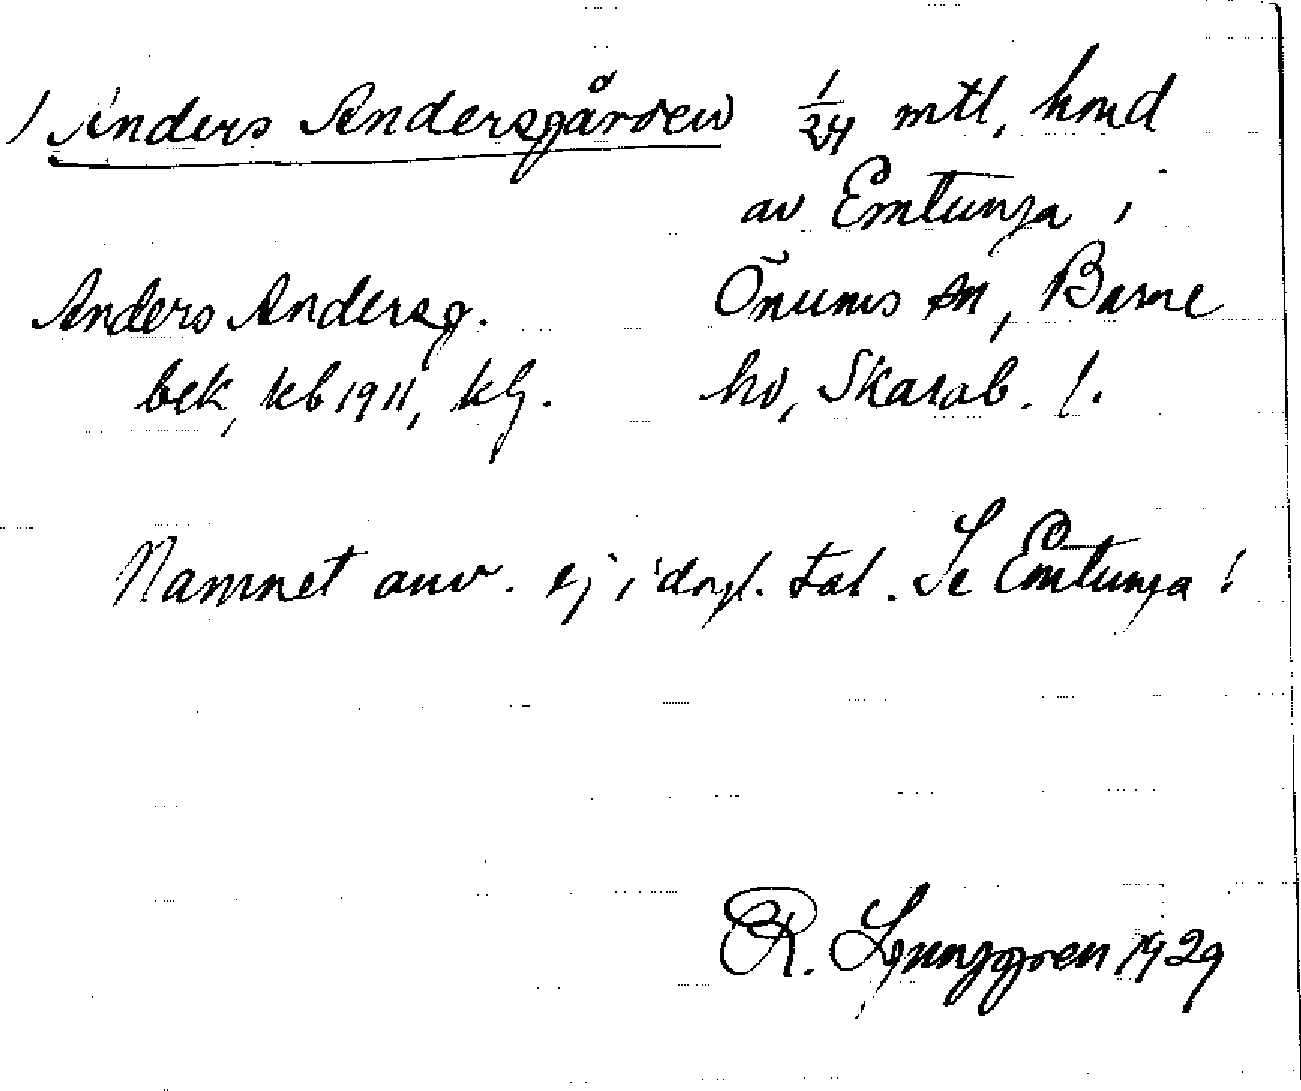 / Anders Andersgården 1/24 mtl, hmd
av Emtunga i
Önums sn, Barne
hd, Skarab. l.
Anders Andersg.
bek, kb 1911, klj.
Namnet anv. ej i dagl. tal. Se Emtunga!
R. Ljunggren 1929